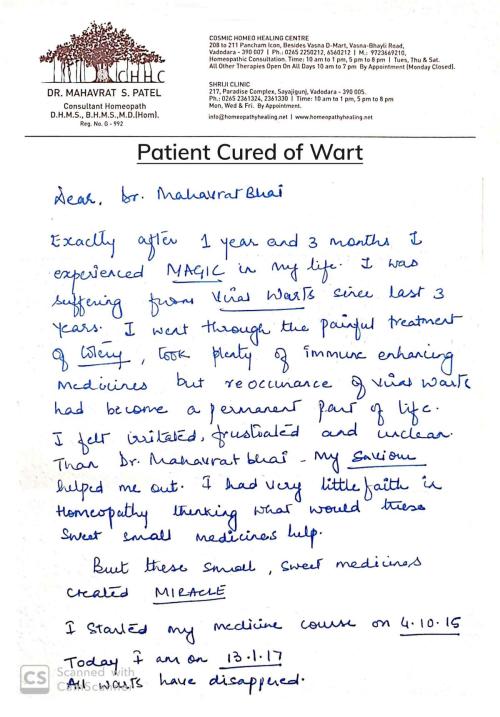 CHHC
DR. MAHAVRAT S. PATEL
Consultant Homeopath
D.H.M.S., B.H.M.S.,M.D.(Hom).
Reg. No. G - 992
COSMIC HOMEO HEALING CENTRE
208 to 211 Pancham Icon, Besides Vasna D-Mart, Vasna-Bhayli Road,
Vadodara - 390 007 | Ph.: 0265 2250212, 6560212 | M.: 9723669210,
Homeopathic Consultation. Time: 10 am to 1 pm, 5 pm to 8 pm | Tues, Thu & Sat.
All Other Therapies Open On All Days 10 am to 7 pm By Appointment (Monday Closed).
SHRIJI CLINIC
217, Paradise Complex, Sayajigunj, Vadodara - 390 005.
Ph.: 0265 2361324, 2361330 | Time: 10 am to 1 pm, 5 pm to 8 pm
Mon, Wed & Fri. By Appointment.
info@homeopathyhealing.net | www.homeopathyhealing.net
Patient Cured of Wart
Dear, Dr. Mahavrat Bhai
Exactly after 1 year and 3 months I
experienced MAGIC in my life. I was
suffering from Viral Warts since last 3
years. I went through the painful treatment
of, took plenty of immune enhancing
medicines but reoccurance of viral warts
had become a permanent part of life.
I felt irritated, frustrated and unclean.
Than Dr. Mahavrat bhai - my Saviour
helped me out. I had very little faith in
Homeopathy thinking what would these
sweet small medicines help.
But these small, sweet medicines
created MIRACLE
I started my medicine course on 4.10.15
Today I am on 13.1.17
All warts have disappered.
CS Scanned with
CamScanner